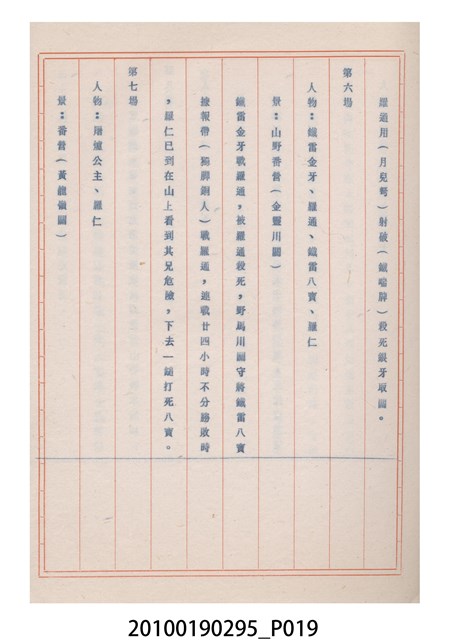 羅通用（月兒弩）射破（鐵喘牌）殺死銀牙取關。
第六場
人物：鐵雷金牙、羅通、鐵雷八寶、羅仁
景：山野番營（金靈川關）
鐵雷金牙戰羅通，被羅通殺死，野馬川關守將鐵雷八寶
據報帶（獨脚銅人）戰羅通，連戰廿四小時不分勝敗時
，羅仁已到在山上看到其兄危險，下去一鎚打死八寶。
第七場
人物：屠爐公主、羅仁
景：番營（黃龍嶺關）
20100190295_P019